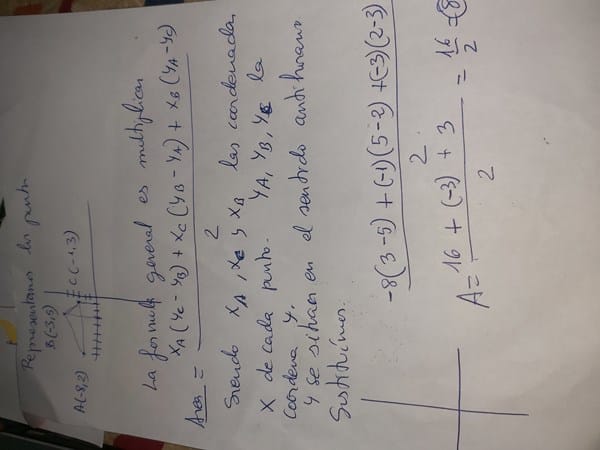 Representamos los punto
B(-3,5)
A(-8,2)
C(-1,3)
La formula general es multiplicar
Area = xA(yC - yB) + xC(yB - yA) + xB(yA - yC)
2
Siendo xA, xC y xB las coordenadas
X de cada punto. yA, yB, yC la
coordena y,
y se situan en el sentido antihorario
Sustituimos.
-8(3-5) + (-1)(5-2) + (-3)(2-3)
2
A = 16 + (-3) + 3 = 16 = 8
2 2